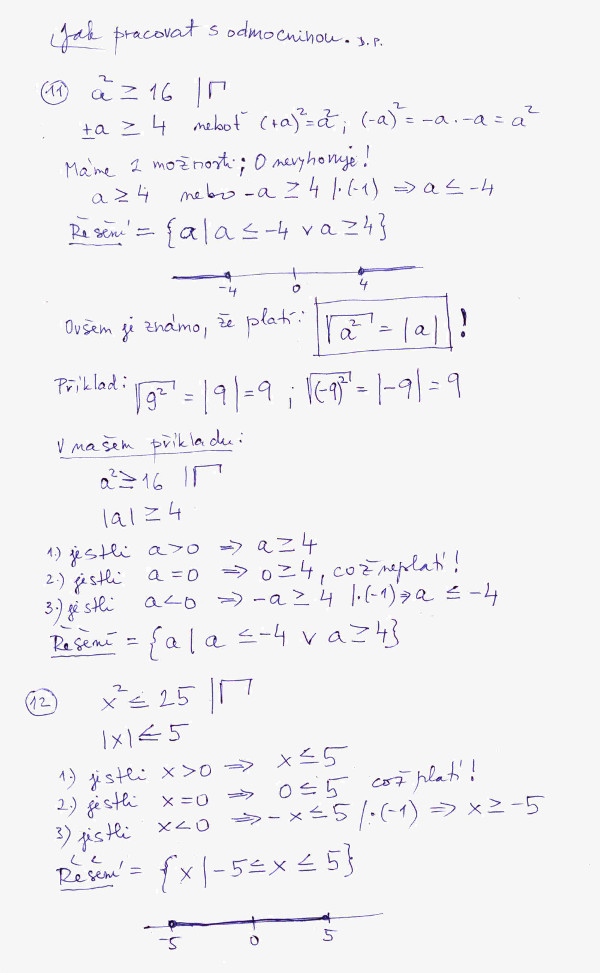 Jak pracovat s odmocninou. J.P.
11 a² ≥ 16 |√
±a ≥ 4 neboť (+a)² = a²; (-a)² = -a · -a = a²
Máme 2 možnosti; 0 nevyhovuje!
a ≥ 4 nebo -a ≥ 4 |·(-1) ⇒ a ≤ -4
Řešení = {a | a ≤ -4 ∨ a ≥ 4}
-4 0 4
Ovšem je známo, že platí: √a² = |a| !
Příklad: √9² = |9| = 9 ; √(-9)² = |-9| = 9
V našem příkladu:
a² ≥ 16 |√
|a| ≥ 4
1.) jestli a > 0 ⇒ a ≥ 4
2.) jestli a = 0 ⇒ 0 ≥ 4, což neplatí!
3.) jestli a < 0 ⇒ -a ≥ 4 |·(-1) ⇒ a ≤ -4
Řešení = {a | a ≤ -4 ∨ a ≥ 4}
12 x² ≤ 25 |√
|x| ≤ 5
1.) jestli x > 0 ⇒ x ≤ 5
2.) jestli x = 0 ⇒ 0 ≤ 5 což platí!
3) jistli x < 0 ⇒ -x ≤ 5 |·(-1) ⇒ x ≥ -5
Řešení = {x | -5 ≤ x ≤ 5}
-5 0 5